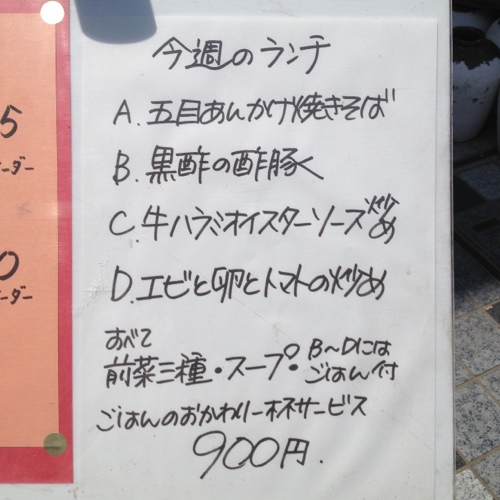 今週のランチ
A. 五目あんかけ焼きそば
B. 黒酢の酢豚
C. 牛ハラミオイスターソース炒め
D. エビと卵とトマトの炒め
すべて
前菜三種・スープ・B〜Dには
ごはん付
ごはんのおかわり一杯サービス
900円.
5
ーダー
0
ーダー